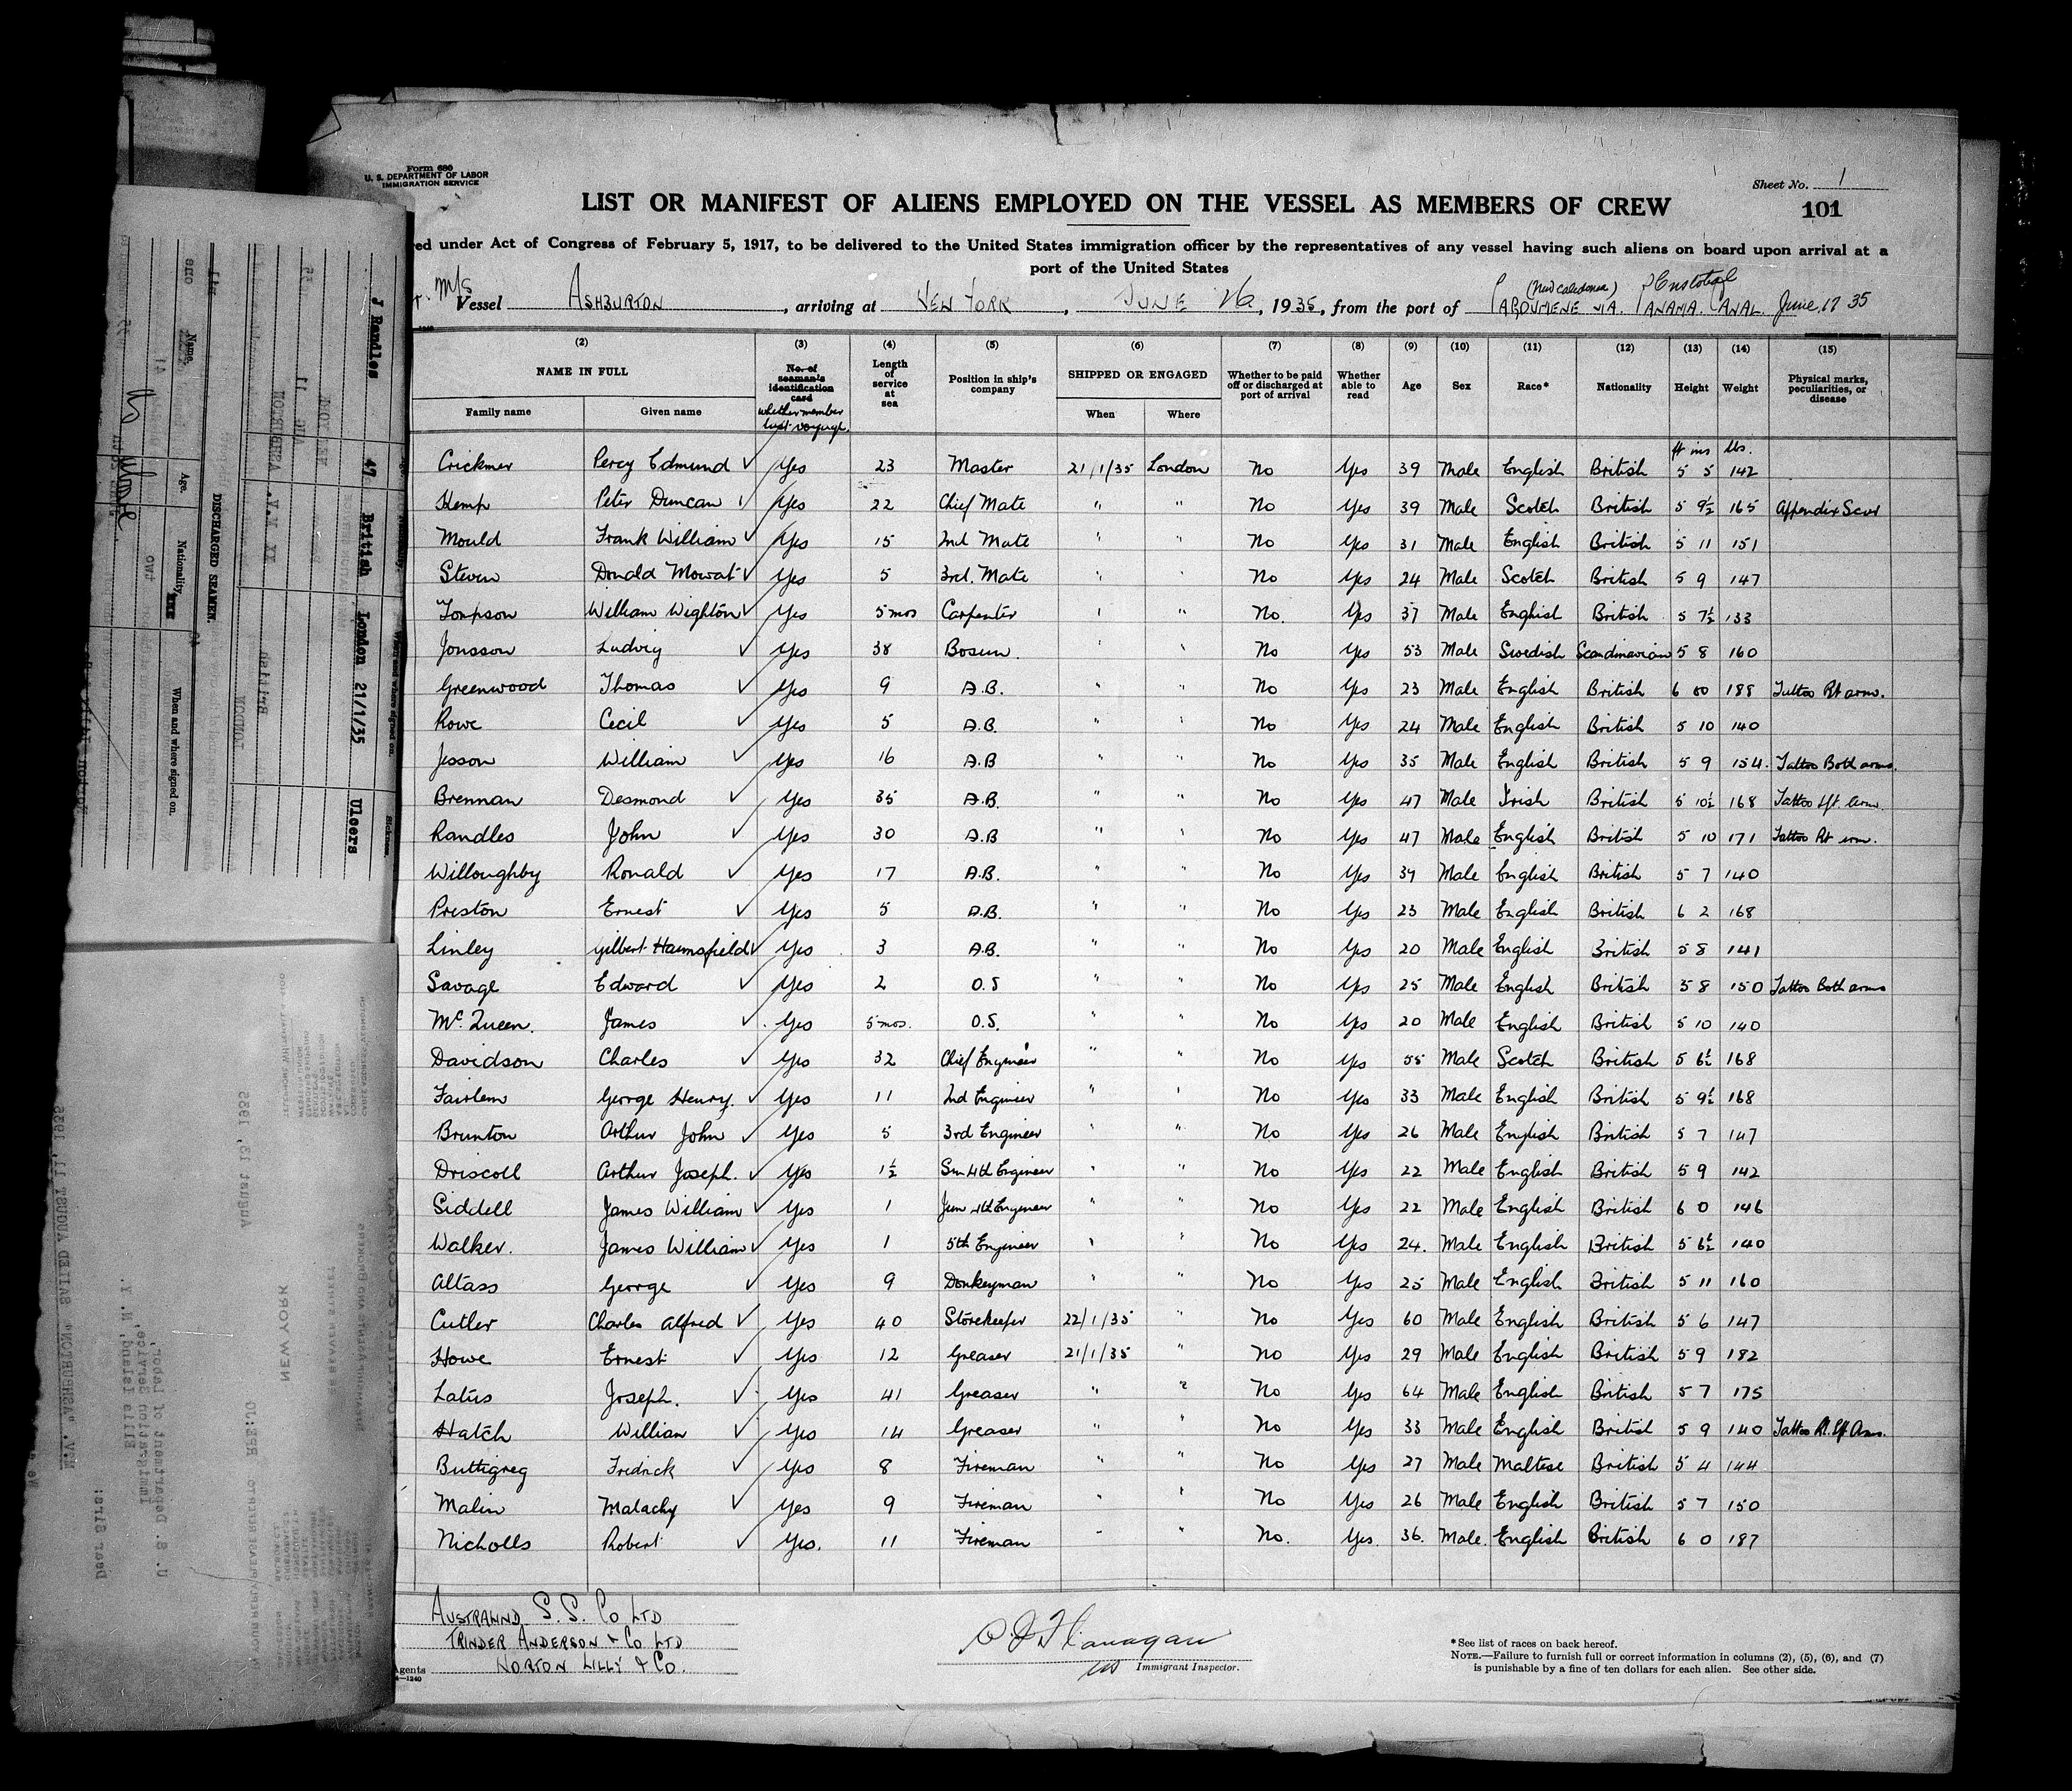 Form 680
U. S. DEPARTMENT OF LABOR
IMMIGRATION SERVICE
Sheet No. 1
LIST OR MANIFEST OF ALIENS EMPLOYED ON THE VESSEL AS MEMBERS OF CREW
101
red under Act of Congress of February 5, 1917, to be delivered to the United States immigration officer by the representatives of any vessel having such aliens on board upon arrival at a
port of the United States
M/s Vessel ASHBURTON, arriving at NEW YORK, JUNE 26, 1935, from the port of (New Caledonia) VIA PANAMA CANAL June 17 35
(2) (3) (4) (5) (6) (7) (8) (9) (10) (11) (12) (13) (14) (15)
NAME IN FULL No. of seaman's identification card whether member last voyage. Length of service at sea Position in ship's company SHIPPED OR ENGAGED Whether to be paid off or discharged at port of arrival Whether able to read Age Sex Race* Nationality Height Weight Physical marks, peculiarities, or disease
Family name Given name When Where
ft ins lbs.
Crickmer Percy Edmund ✓ Yes 23 Master 21/1/35 London No Yes 39 Male English British 5 5 142
Kemp Peter Duncan ✓ Yes 22 Chief Mate " " No Yes 39 Male Scotch British 5 9½ 165 Appendix Scar
Mould Frank William ✓ Yes 15 2nd Mate " " No Yes 31 Male English British 5 11 151
Steven Donald Mowat ✓ Yes 5 3rd. Mate " " No Yes 24 Male Scotch British 5 9 147
Tompson William Wighton ✓ Yes 5 mos Carpenter " " No. Yes 37 Male English British 5 7½ 133
Jonsson Ludvig ✓ Yes 38 Bosun. " " No Yes 53 Male Swedish Scandinavian 5 8 160
Greenwood Thomas ✓ Yes 9 A.B. " " No Yes 23 Male English British 6 00 188 Tattoo Rt arm.
Rowe Cecil ✓ Yes 5 A.B. " " No Yes 24 Male English British 5 10 140
Jesson William ✓ Yes 16 A.B " " No Yes 35 Male English British 5 9 154. Tattoo Both arms.
Brennan Desmond ✓ Yes 35 A.B. " " No Yes 47 Male Irish British 5 10½ 168 Tattoo Lft. Arm.
Randles John ✓ Yes 30 A.B " " No Yes 47 Male English British 5 10 171 Tattoo Rt arm.
Willoughby Ronald ✓ Yes 17 A.B. " " No Yes Male English British 5 7 140
Preston Ernest ✓ Yes 5 A.B. " " No Yes 23 Male English British 6 2 168
Linley Gilbert ✓ Yes 3 A.B. " " No Yes 20 Male English British 5 8 141
Savage Edward ✓ Yes 2 O.S " " No Yes 25 Male English British 5 8 150 Tattoo Both arms
Mc.Queen. James ✓ Yes 5 mos. O.S. " " No Yes 20 Male English British 5 10 140
Davidson Charles ✓ Yes 32 Chief Engineer " " No Yes 55 Male Scotch British 5 6½ 168
Fairlem George Henry. ✓ Yes 11 2nd Engineer " " No Yes 33 Male English British 5 9½ 168
Brunton Arthur John ✓ Yes 5 3rd Engineer " " No Yes 26 Male English British 5 7 147
Driscoll Arthur Joseph. ✓ Yes 1½ Sen 4th Engineer " " No Yes 22 Male English British 5 9 142
Siddell James William ✓ Yes 1 Jun 4th Engineer " " No Yes 22 Male English British 6 0 146
Walker. James William ✓ Yes 1 5th Engineer " " No Yes 24. Male English British 5 6½ 140
Altass George ✓ Yes 9 Donkeyman " " No Yes 25 Male English British 5 11 160
Cutler Charles Alfred ✓ Yes 40 Storekeeper 22/1/35 " No Yes 60 Male English British 5 6 147
Howe Ernest ✓ Yes 12 Greaser 21/1/35 " No Yes 29 Male English British 5 9 182
Latus Joseph. ✓ Yes 41 Greaser " " No Yes 64 Male English British 5 7 175
Hatch William ✓ Yes 14 Greaser " " No Yes 33 Male English British 5 9 140 Tattoo Rt. Lft Arms.
Buttigreg Fredrick ✓ Yes 8 Fireman " " No Yes 27 Male Maltese British 5 4 144
Malin Malachy ✓ Yes 9 Fireman " " No Yes 26 Male English British 5 7 150
Nicholls Robert ✓ Yes. 11 Fireman " " No. Yes. 36. Male. English British 6 0 187
AUSTRALIND S.S. Co LTD
TRINDER ANDERSON & Co LTD
Agents NORTON LILLY & Co.
Flanagan
Immigrant Inspector.
*See list of races on back hereof.
NOTE.—Failure to furnish full or correct information in columns (2), (5), (6), and (7)
is punishable by a fine of ten dollars for each alien. See other side.
J Randles 47 British London 21/1/35 Ulcers
DISCHARGED SEAMEN.
Name. Age. Nationality. When and where signed on.
NEW YORK
August 13, 1935
U. S. Department of Labor,
Immigration Service,
Ellis Island, N. Y.
Dear Sirs:
M.V. "ASHBURTON" SAILED AUGUST 11, 1935